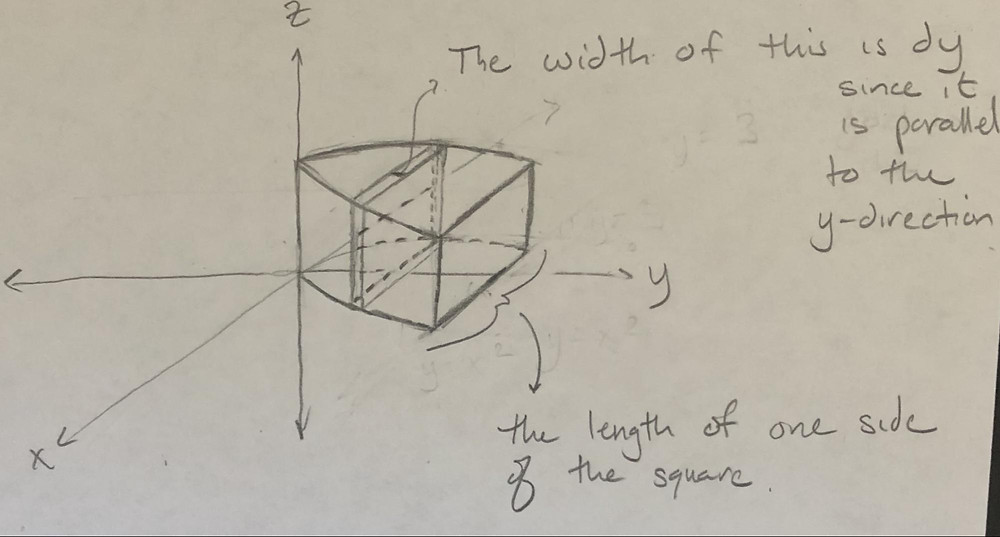 z
The width of this is dy
since it
is parallel
to the
y-direction
y = 3
y
y = x²
x
the length of one side
of the square.